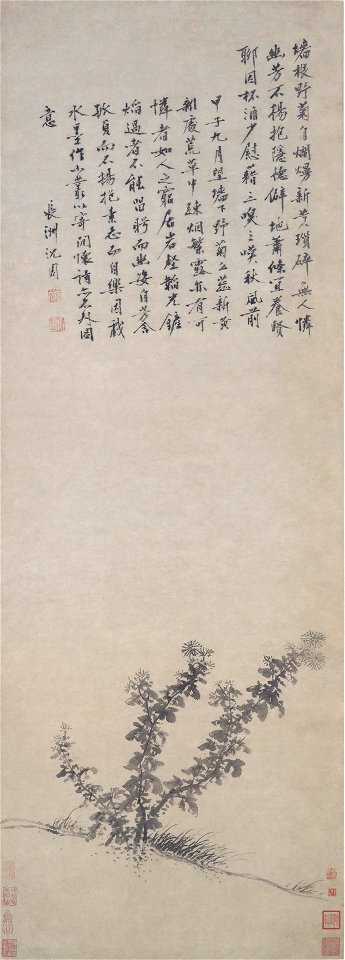 墻根野菊自爛熳新黃瑣碎無人憐
幽芳不揚抱隱德僻地蕭條宜養賢
聊因杯酒少慰藉三嗅三嘆秋風前
甲子九月望墻下野菊公蕊新黃
雜處荒草中疎烟繁露亦有可
憐者如人之窮居岩壑韜光鏟
焰過者不能留眄而幽姿自芳含
孤貞而不揚抱素志而自樂因戲
水墨作小叢以寄閒懷詩亦若對同
意
長洲沈周